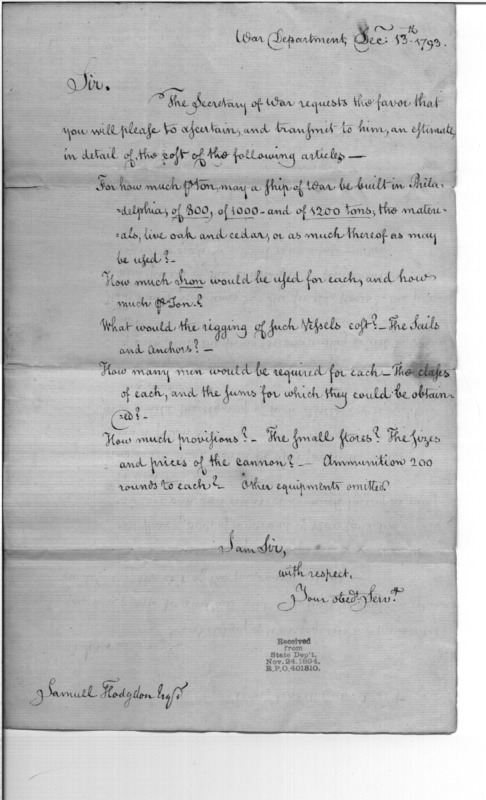 War Department, Dec: 13th 1793.
Sir.
The Secretary of War requests the favor that
you will please to ascertain, and transmit to him, an estimate
in detail of the cost of the following articles —
For how much ⅌ ton, may a ship of war be built in Phila-
=delphia, of 800, of 1000 - and of 1200 tons, the materi-
=als, live oak and cedar, or as much thereof as may
be used? -
How much Iron would be used for each, and how
much ⅌ Ton?
What would the rigging of such Vessels cost? - The Sails
and Anchors? -
How many men would be required for each - The classes
of each, and the sums for which they could be obtain-
=ed? -
How much provisions? - The small stores? The sizes
and prices of the cannon? - Ammunition 200
rounds to each? - Other equipments omitted
I am Sir,
with respect,
Your obedt. Servt.
Received
from
State Dep't.
Nov. 24, 1894.
R.P.O. 401810.
Samuel Hodgdon Esqr.